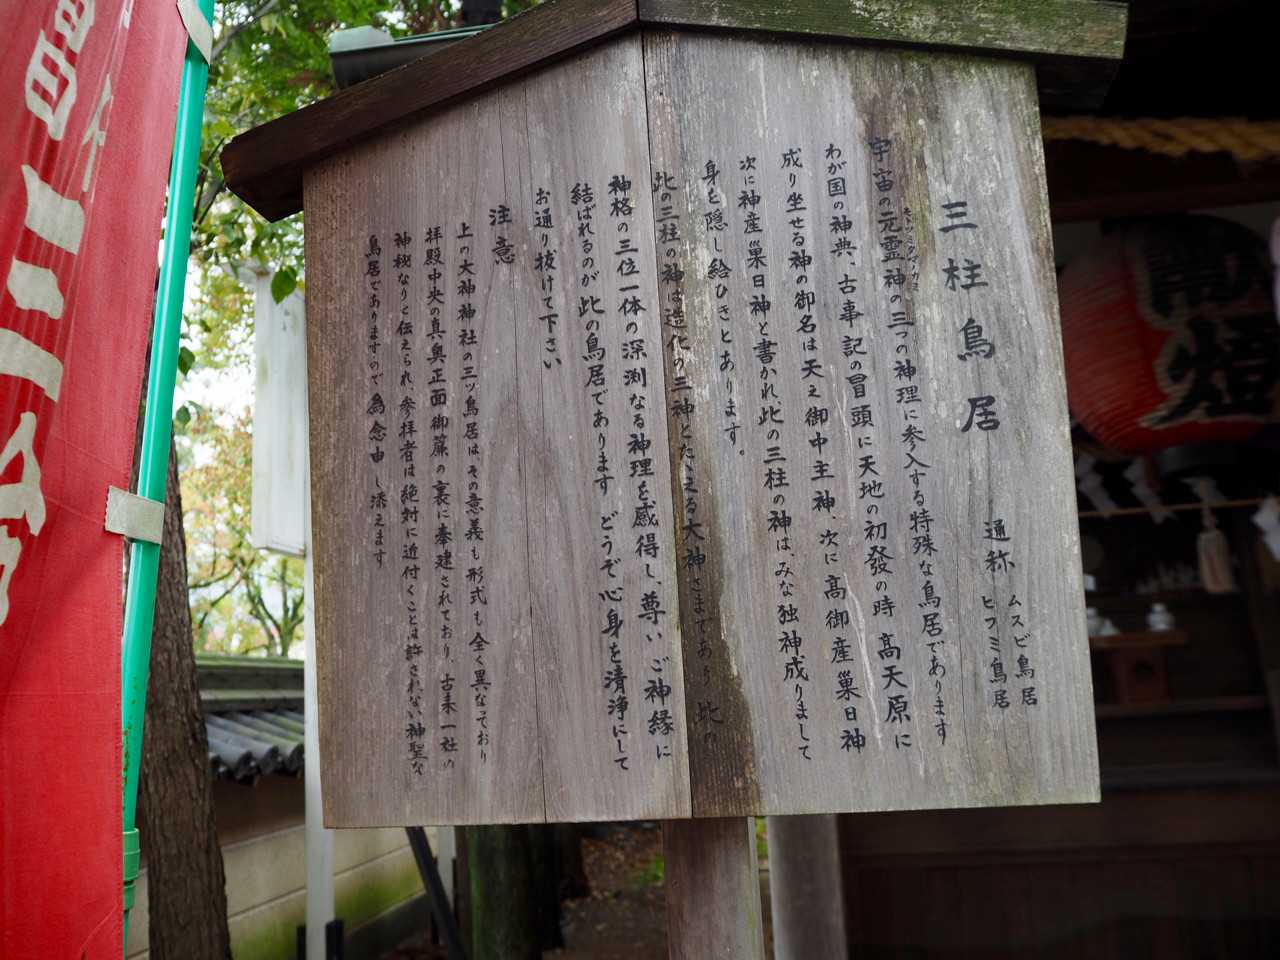 三柱鳥居
通称
ムスビ鳥居
ヒフミ鳥居
宇宙の元霊神の三つの神理に参入する特殊な鳥居であります
わが国の神典、古事記の冒頭に天地の初發の時 高天原に
成り坐せる神の御名は天之御中主神、次に高御産巣日神
次に神産巣日神と書かれ、此の三柱の神はみな独神成りまして
身を隠し給ひきとあります。
此の三柱の神は造化の三神とたゝえる大神さまであり 此の
神格の三位一体の深渕なる神理を感得し、尊いご神縁に
結ばれるのが此の鳥居であります どうぞ心身を清浄にして
お通り抜けて下さい
注意
上の大神神社の三ッ鳥居はその意義も形式も全く異なっており
拝殿中央の真奥正面御簾の裏に奉建されており、古来一社の
神秘なりと伝えられ、参拝者は絶対に近付くことは許されない神聖な
鳥居でありますので為念申し添えます